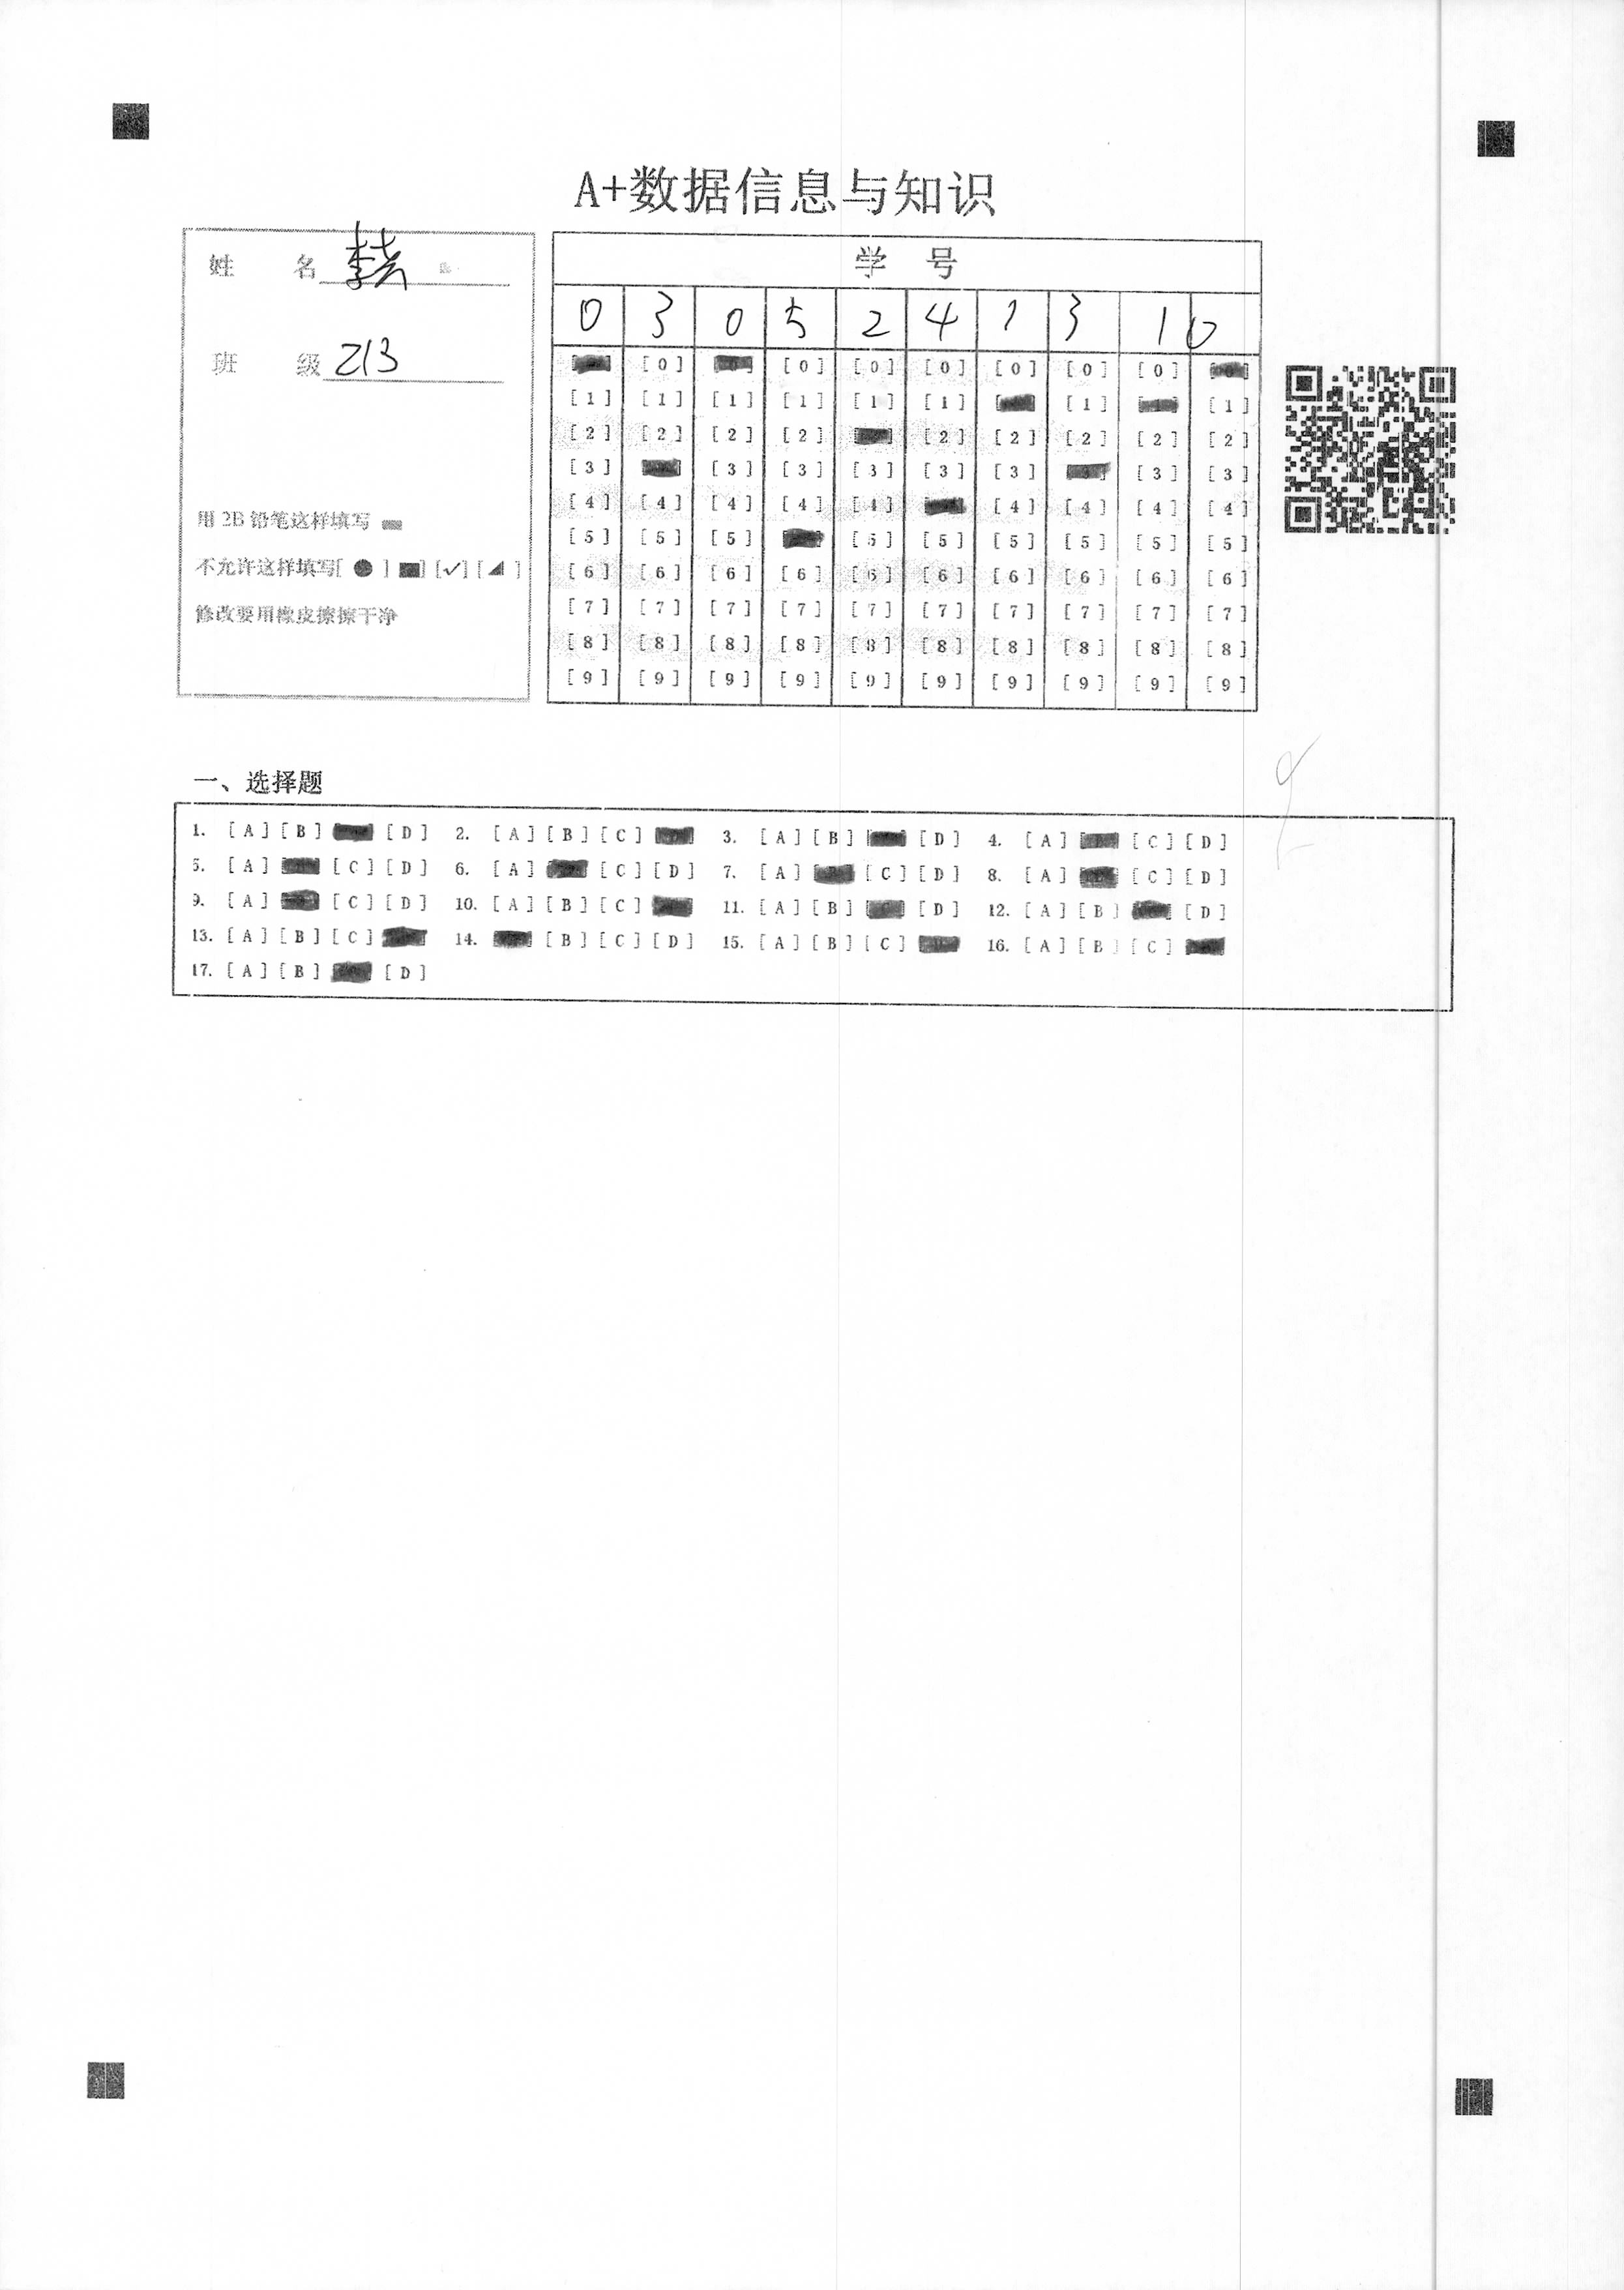 A+数据信息与知识
姓 名
班 级 213
用 2B 铅笔这样填写
不允许这样填写[ ● ] ■] [✓] [◢ ]
修改要用橡皮擦擦干净
学 号
0 3 0 5 2 4 1 3 1 0
[0] [0] [0] [0] [0] [0] [0]
[1] [1] [1] [1] [1] [1] [1] [1]
[2] [2] [2] [2] [2] [2] [2] [2] [2]
[3] [3] [3] [3] [3] [3] [3] [3]
[4] [4] [4] [4] [4] [4] [4] [4] [4]
[5] [5] [5] [5] [5] [5] [5] [5] [5]
[6] [6] [6] [6] [6] [6] [6] [6] [6] [6]
[7] [7] [7] [7] [7] [7] [7] [7] [7] [7]
[8] [8] [8] [8] [8] [8] [8] [8] [8] [8]
[9] [9] [9] [9] [9] [9] [9] [9] [9] [9]
一、选择题
1. [A] [B] [D] 2. [A] [B] [C] 3. [A] [B] [D] 4. [A] [C] [D]
5. [A] [C] [D] 6. [A] [C] [D] 7. [A] [C] [D] 8. [A] [C] [D]
9. [A] [C] [D] 10. [A] [B] [C] 11. [A] [B] [D] 12. [A] [B] [D]
13. [A] [B] [C] 14. [B] [C] [D] 15. [A] [B] [C] 16. [A] [B] [C]
17. [A] [B] [D]